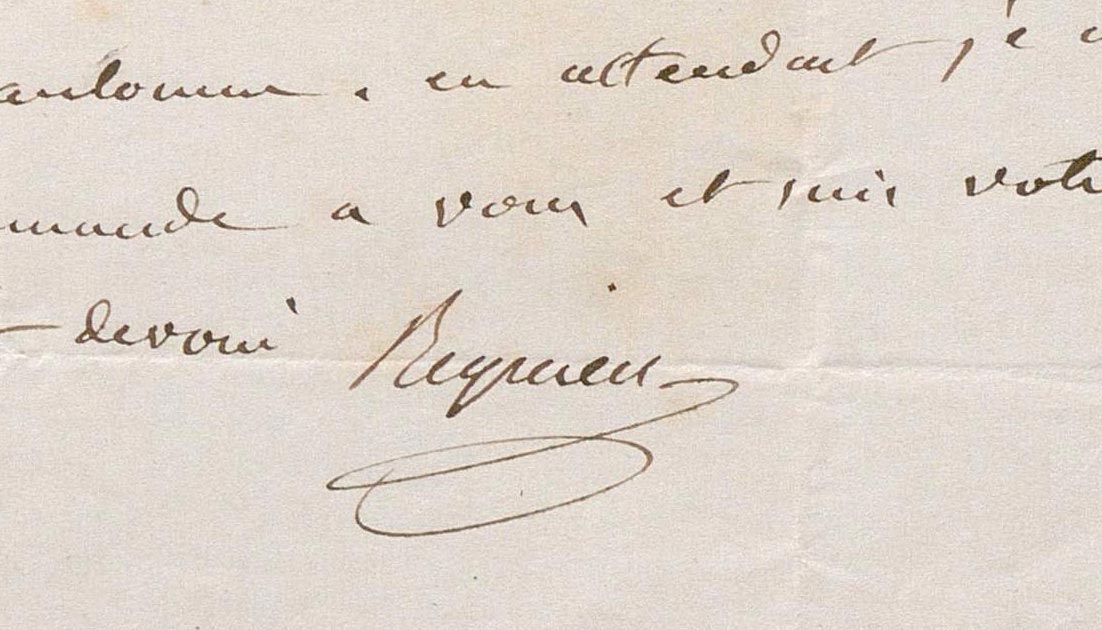 automne. en attendant je
mande a vous et suis votr
devoué Regnier